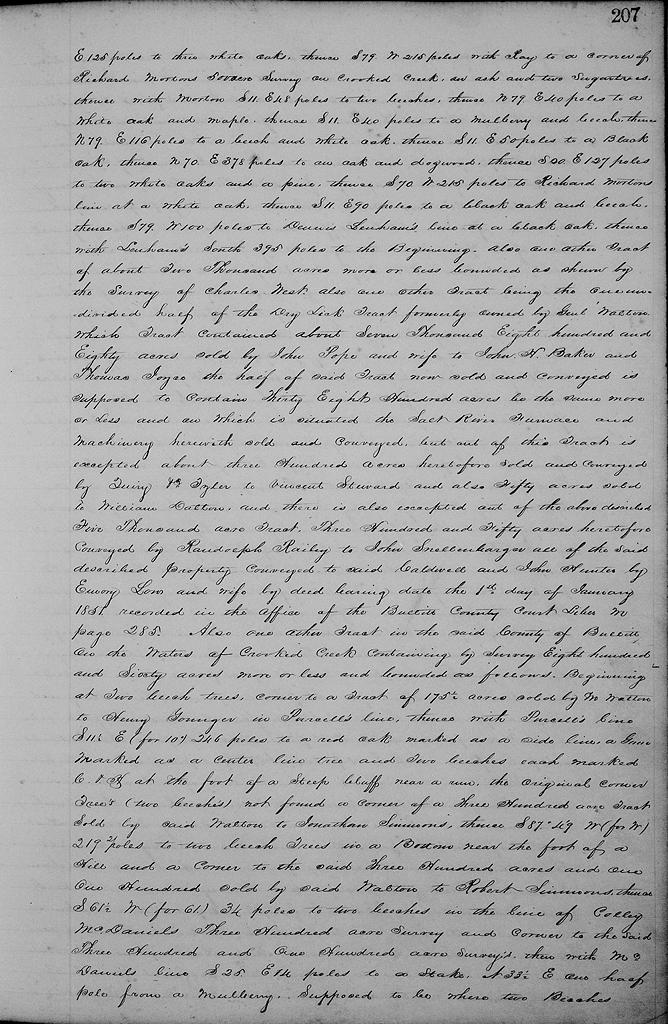 207
E 125 poles to three white oaks. thence S 79. W 215 poles with Ray to a corner of
Richard Mortons Survey on Crooked Creek. an ash and two Sugartrees,
thence with Morton S 11. E 48 poles to two beeches, thence N 79. E 40 poles to a
white oak and maple. thence S 11. E 40 poles to a mulberry and beech. thence
N 79. E 116 poles to a beech and white oak. thence S 11. E 50 poles to a Black
oak, thence N 70. E 378 poles to an oak and dogwood, thence S 20. E 127 poles
to two white oaks and a pine, thence S 70. W 215 poles to Richard Mortons
line at a white oak, thence S 11. E 90 poles to a black oak and beech.
thence S 79. W 100 poles to Dennis Lenham's line at a black oak. thence
with Lenham's South 395 poles to the Beginning. Also one other Tract
of about Two Thousand acres more or less bounded as shewn by
the Survey of Charles West. also one other Tract being the one un-
divided half of the Dry Lick Tract formerly owned by Walton
which Tract contained about Seven Thousand Eight hundred and
Eighty acres sold by John Pope and wife to John H. Baker and
Thomas Joyce the half of said Tract now sold and conveyed is
supposed to Contain Thirty Eight Hundred acres be the same more
or Less and on which is situated the Salt River Furnace and
Machinery herewith sold and Conveyed. but out of this Tract is
excepted about three Hundred acres heretofore sold and conveyed
by Tyler to Vincent Steward and also Fifty acres sold
to William Catton. and there is also excepted out of the above described
Five Thousand acre Tract. Three Hundred and Fifty acres heretofore
Conveyed by Randolph Railey to John Snellenbarger all of the said
described property Conveyed to said Caldwell and John Hunter by
Emory Low and wife by deed bearing date the 1st day of January
1851. recorded in the Office of the Bullitt County Court Liber
page 285. Also one other Tract in the said County of Bullitt
on the Waters of Crooked Creek Containing by Survey Eight hundred
and Sixty acres more or less and bounded as follows. Beginning
at Two beech trees, corner to a Tract of 175½ acres sold by M. Walton
to Henry Younger in Purcell's line, thence with Purcell's line
S 11½ E (for 10) 246 poles to a red oak marked as a side line, a Gum
Marked as a center line tree and Two beeches each marked
at the foot of a Steep bluff near a run, the original corner
Trees (two beeches) not found a corner of a Three Hundred acre Tract
Sold by said Walton to Jonathan Simmons, thence S 87° W (for W)
219 poles to two beech Trees in a Bottom near the foot of a
Hill and a Corner to the said Three Hundred acres and one
One Hundred sold by said Walton to Robert Simmons, thence
S 61½ W (for 61) 34 poles to two beeches in the line of Colley
McDaniels Three Hundred acre Survey and Corner to the said
Three Hundred and One Hundred acre Survey's. then with Mc
Daniels line S 25. E 14 poles to a Stake. N 33½ E one half
pole from a Mulberry. Supposed to be where two Beeches